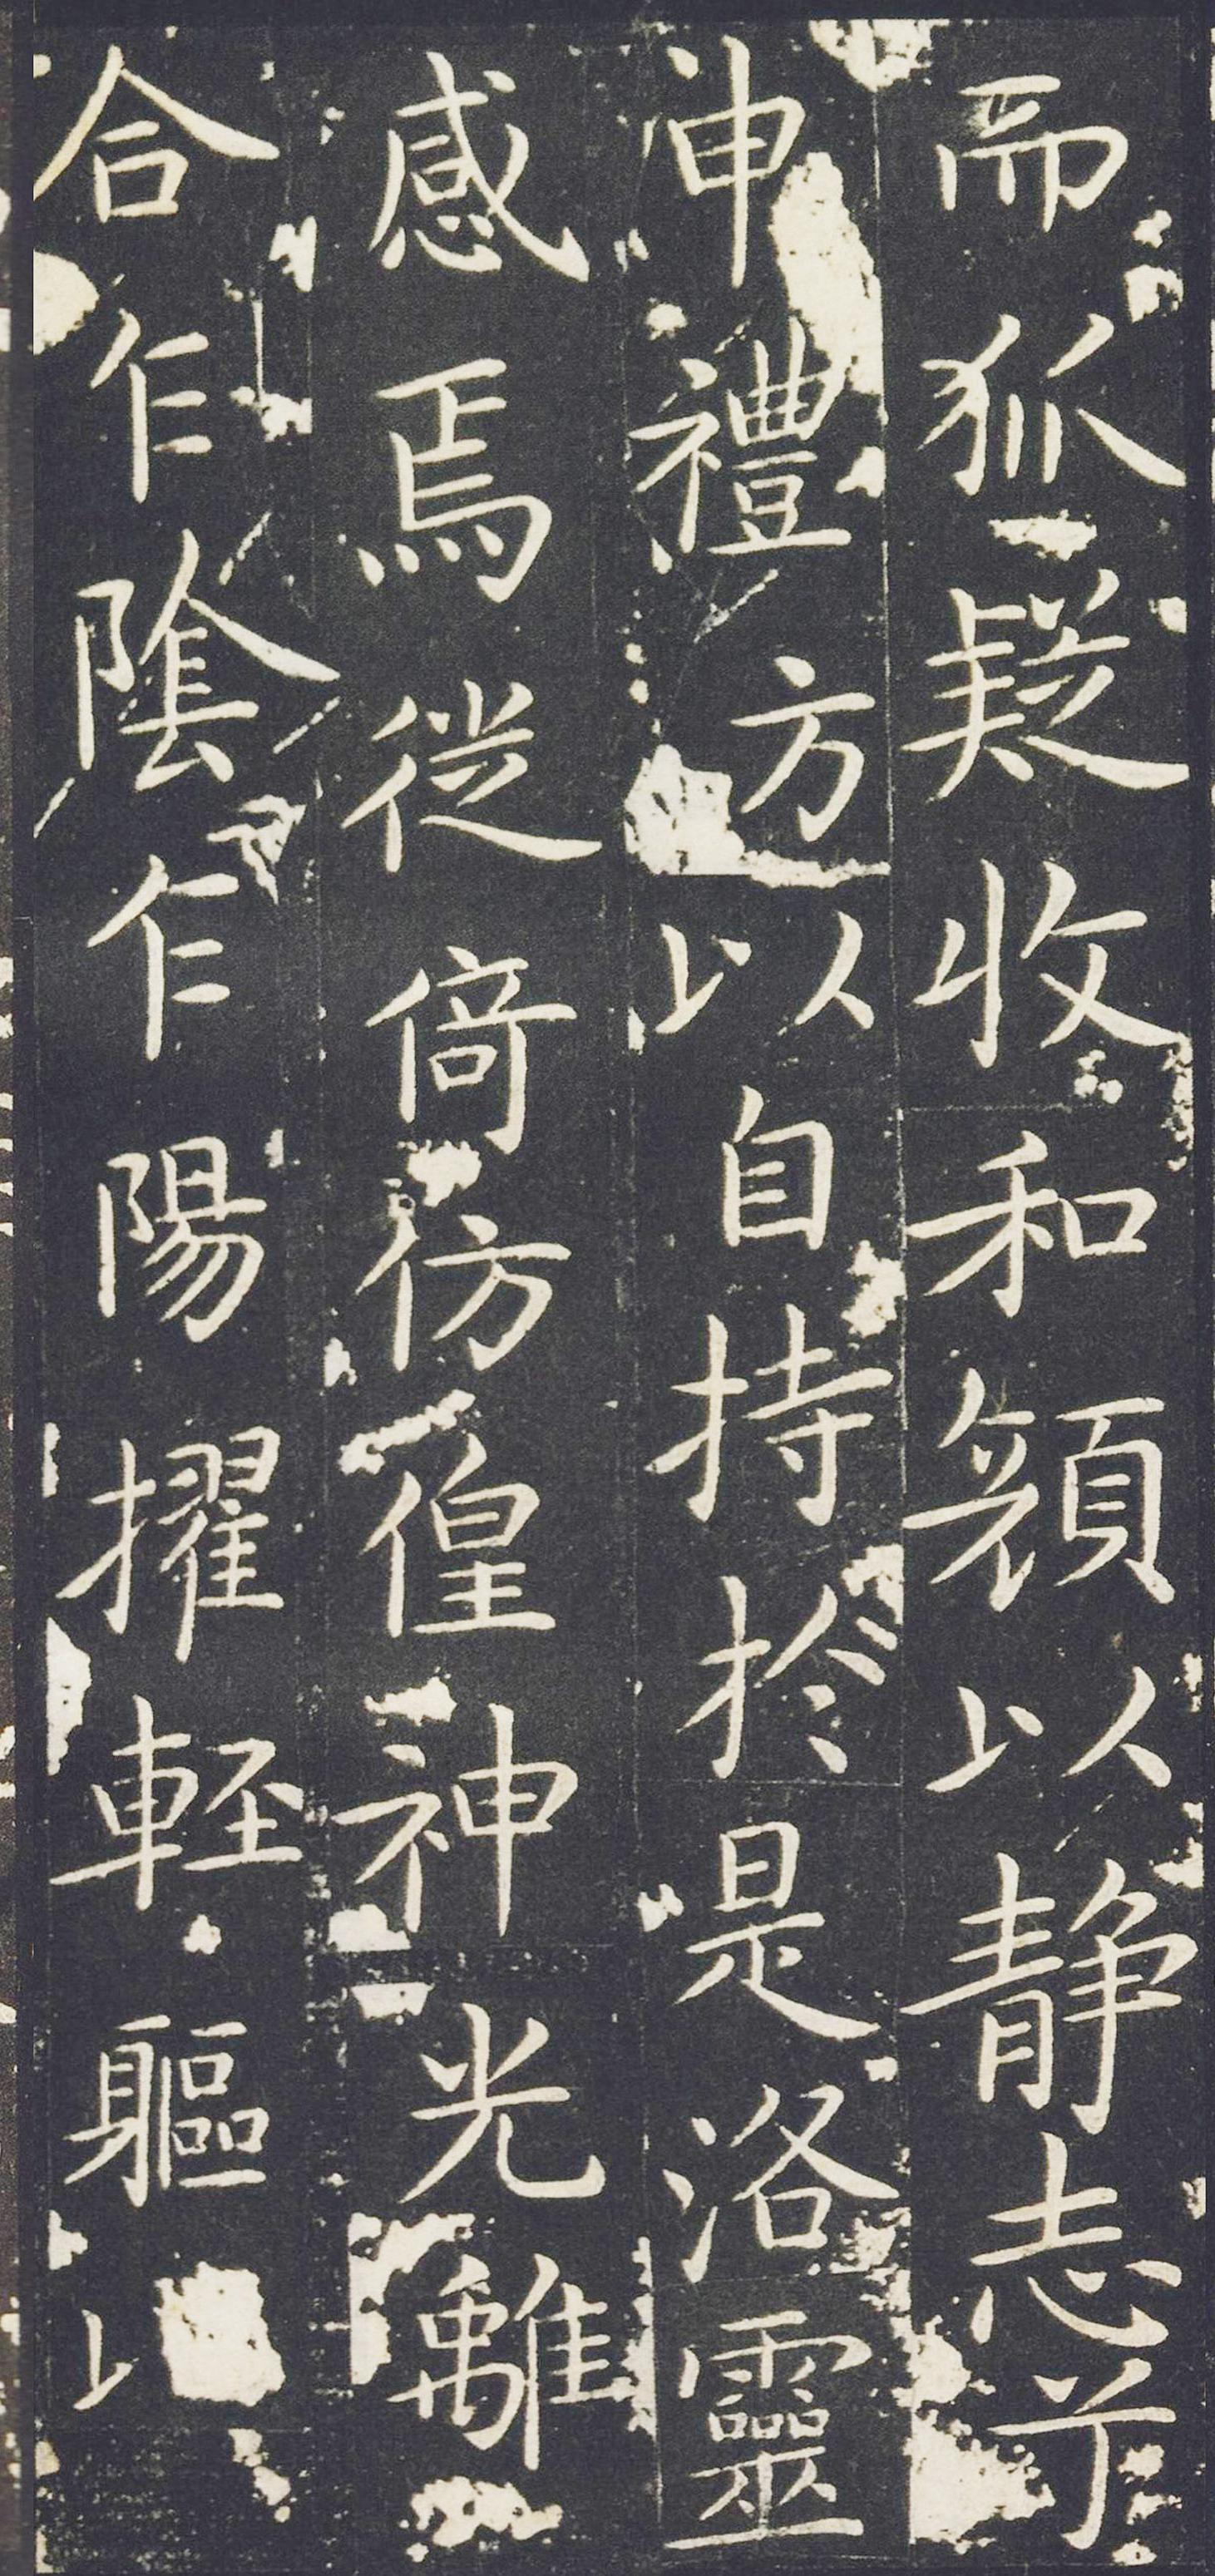 而狐疑收和顏以静志兮
申禮方以自持於是洛靈
感焉徙倚彷偟神光離
合乍陰乍陽擢輕軀以